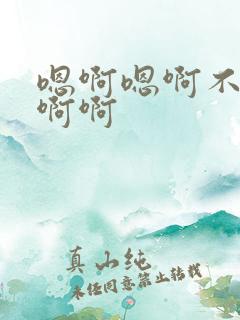 嗯啊嗯啊不
啊啊
真山纯
未经同意禁止转载